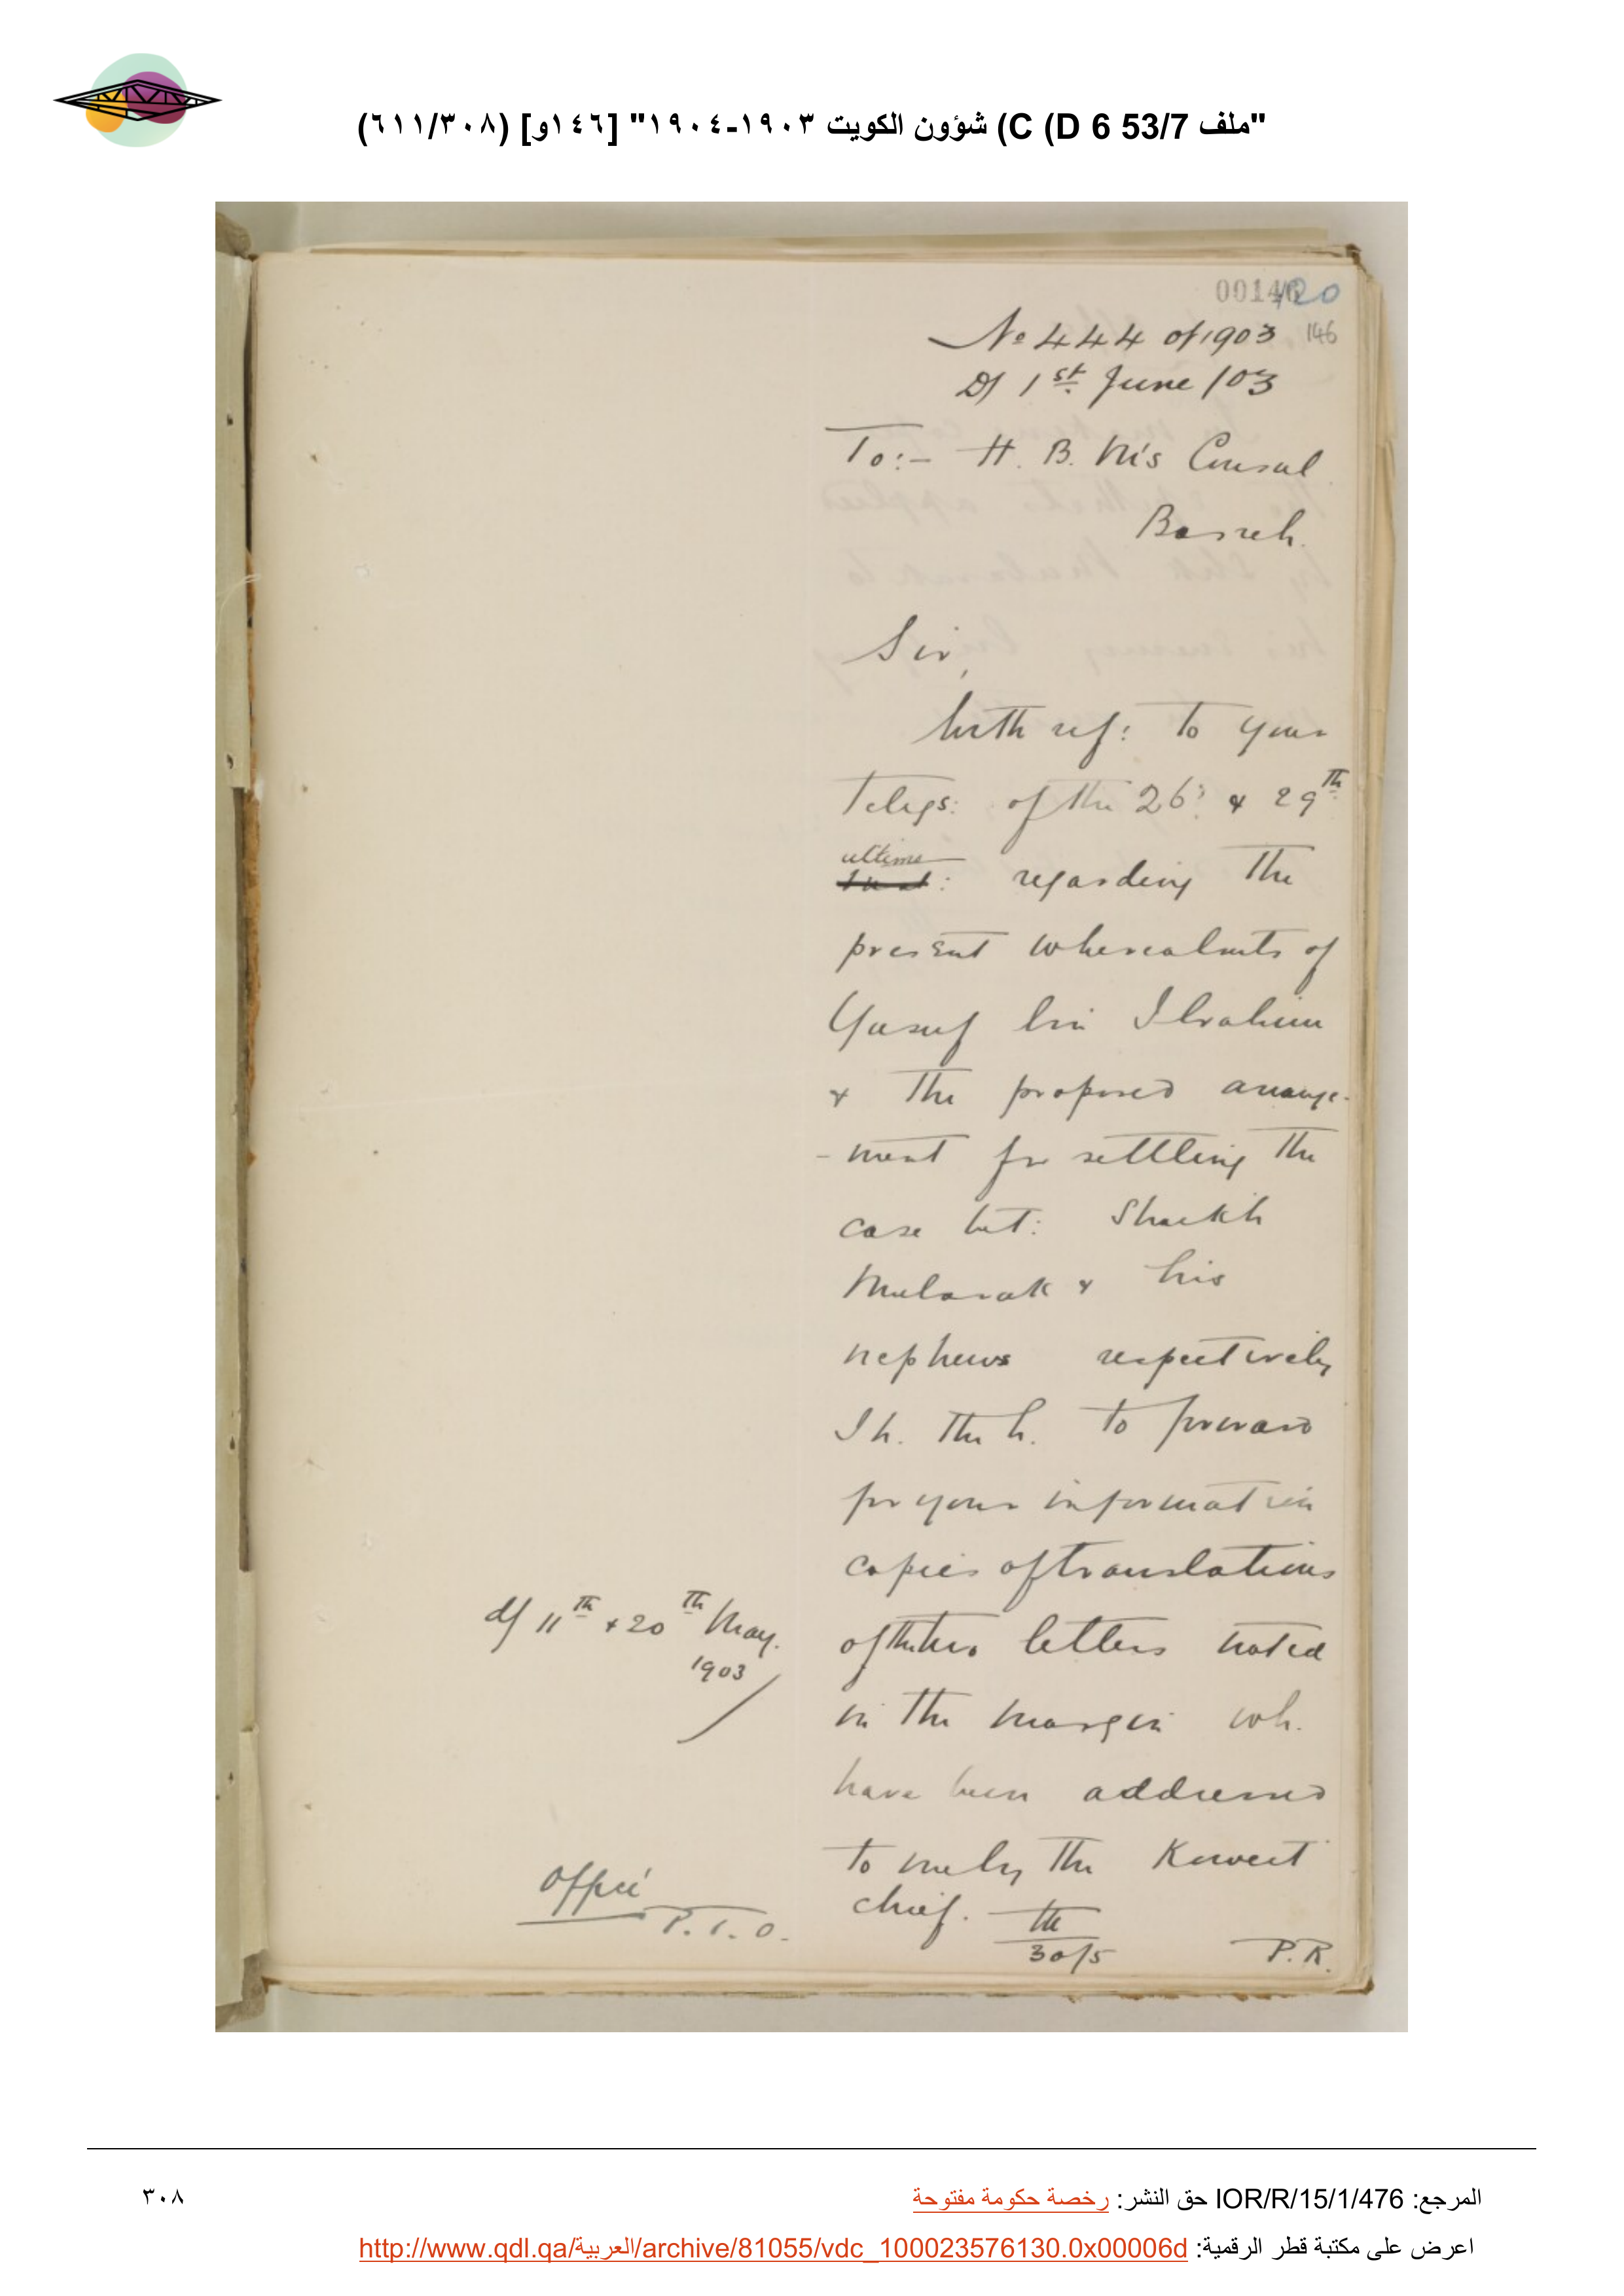 "ملف 53/7 C (D 6) شؤون الكويت ١٩٠٣-١٩٠٤" [١٤٦و] (٦١١/٣٠٨)
00146 120
No 444 of 1903 146
D/ 1st June /03
To:- H. B. M's Consul
Basreh.
Sir,
With ref: to your
Telegs: of the 26: & 29th
ultimo
Inst: regarding the
present whereabouts of
Yusuf bin Ibrahim
& the proposed arrange-
-ment for settling the
case bet: Shaikh
Mubarak & his
nephews respectively
I h. the h. to forward
for your information
copies of translations
d/ 11th + 20th May.
1903
of the two letters noted
in the margin wh.
have been addressed
to me by the Koweit
chief.
30/5
P.R.
Office
P.T.O.
المرجع: IOR/R/15/1/476 حق النشر: رخصة حكومة مفتوحة
٣٠٨
اعرض على مكتبة قطر الرقمية: http://www.qdl.qa/العربية/archive/81055/vdc_100023576130.0x00006d